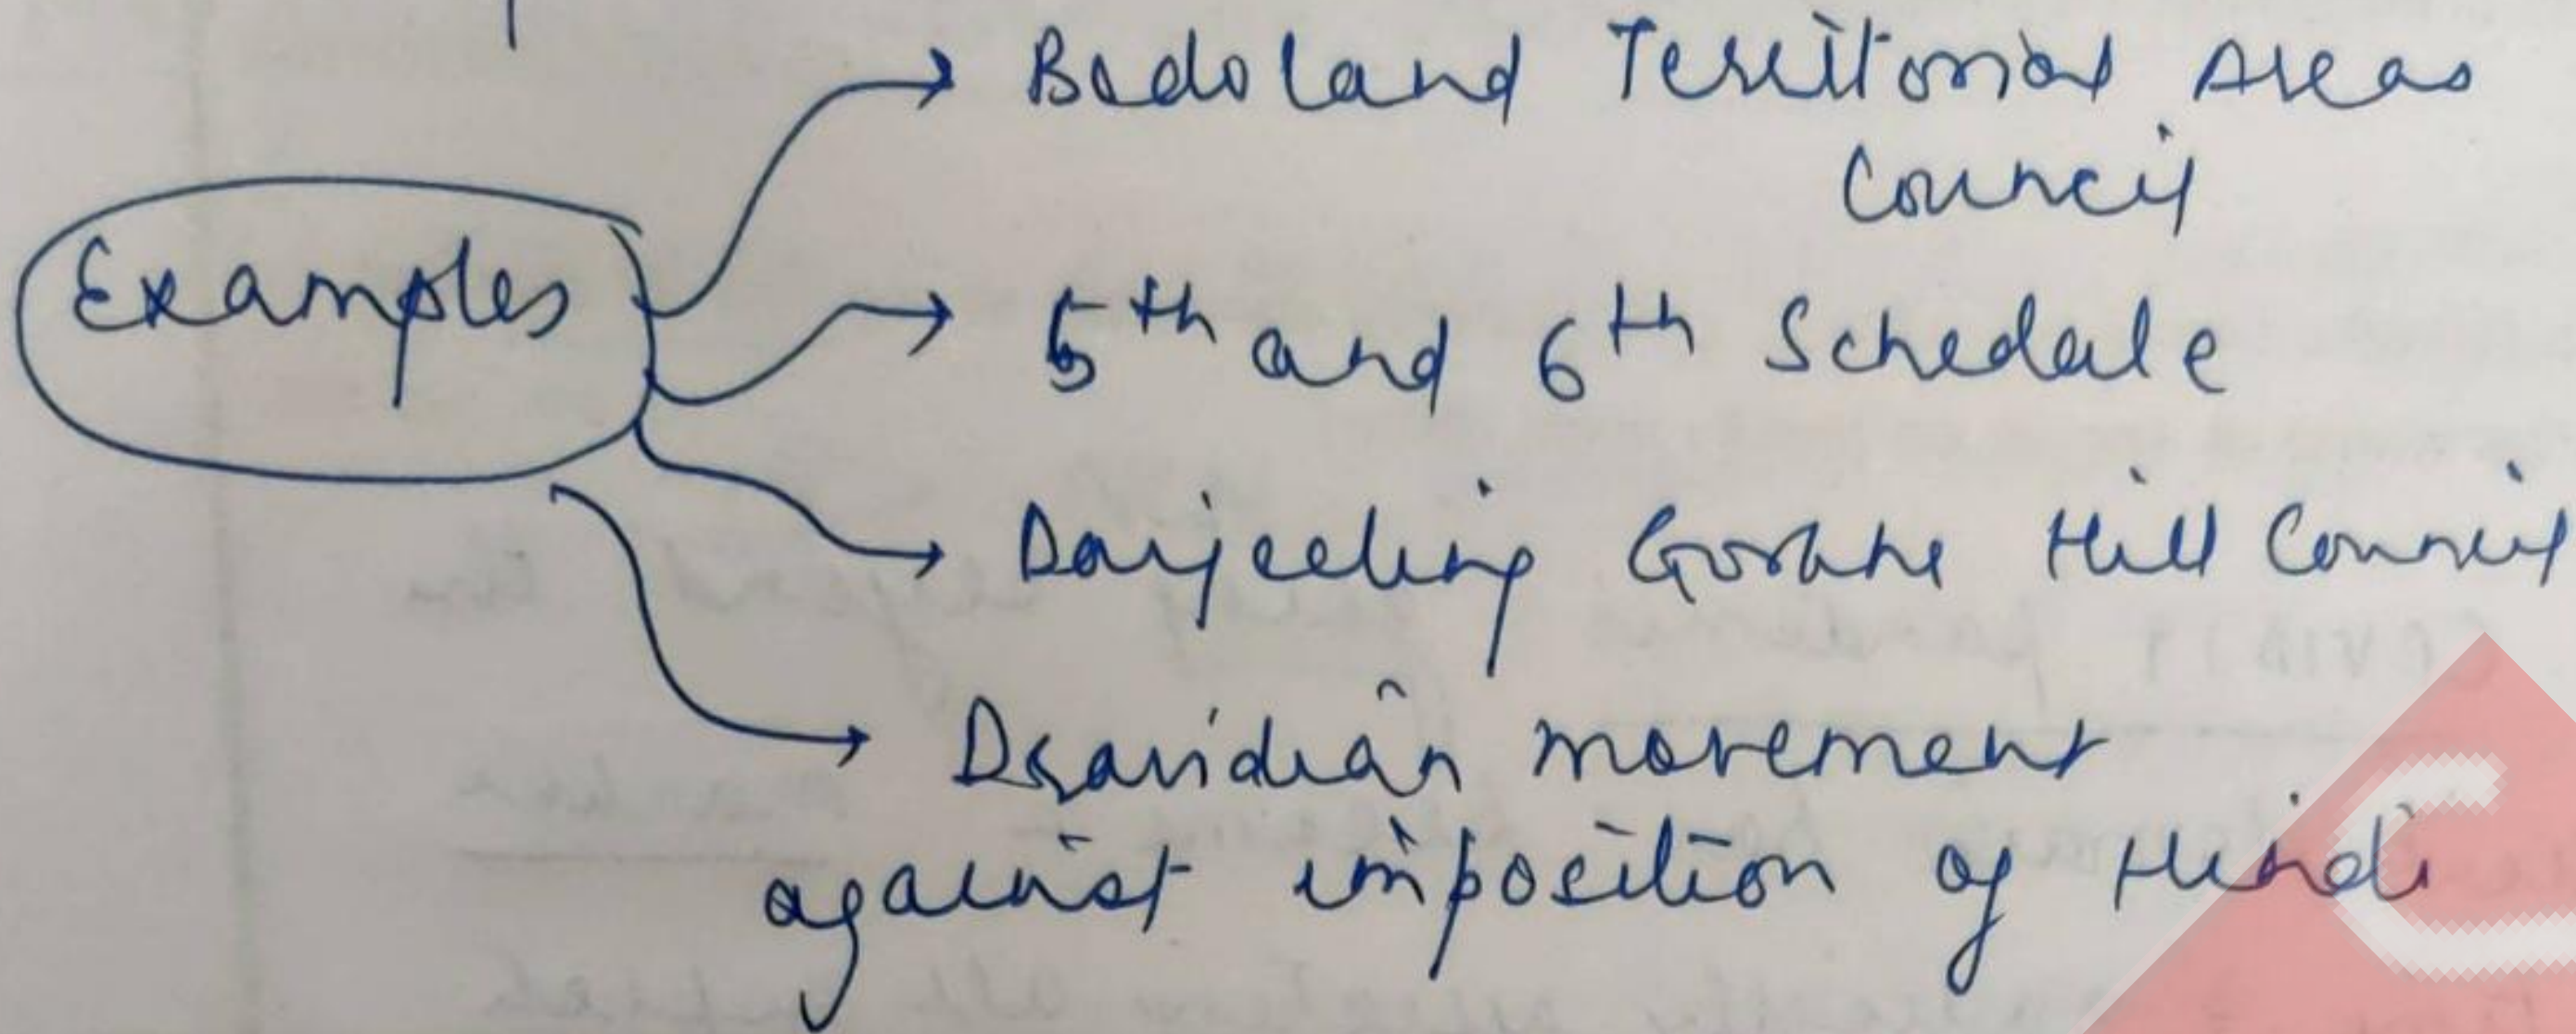 Bodoland Territorial Areas
Council
Examples
5th and 6th Schedule
Darjeeling Gorkha Hill Council
Dravidian movement
against imposition of Hindi